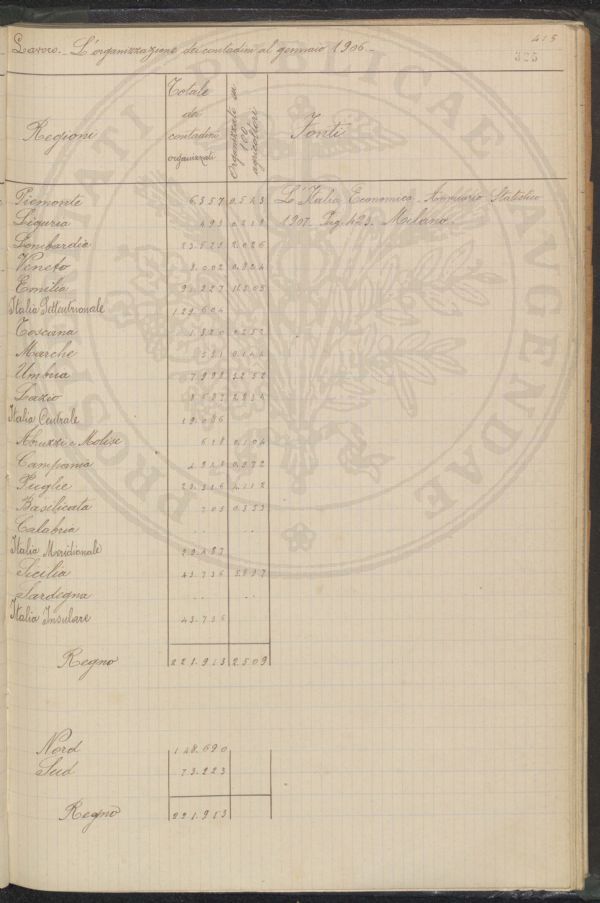 415
Lavoro. - L'organizzazione dei contadini al gennaio 1906 -
325
Regioni
Totale dei contadini organizzati
Organizzati su 100 agricoltori
Fonti
Piemonte 6.357 0.543 L'Italia Economica - Annuario Statistico
Liguria 493 0.218 1907. Pag. 423. Milano
Lombardia 23.525 2.026
Veneto 8.002 0.824
Emilia 91.227
Italia Settentrionale 129.604
Toscana 1.820 0.252
Marche 581 0.144
Umbria 7.998
Lazio 8.687
Italia Centrale 19.086
Abruzzi e Molise 618 0.104
Campania
Puglie 23.316 4.112
Basilicata 705 0.353
Calabria .. ..
Italia Meridionale 29.487
Sicilia 43.736
Sardegna .. ..
Italia Insulare 43.736
Regno 221.913 2.509
Nord 148.690
Sud 73.223
Regno 221.913
PRO SISMATI PUBLICAE AVGENDAE